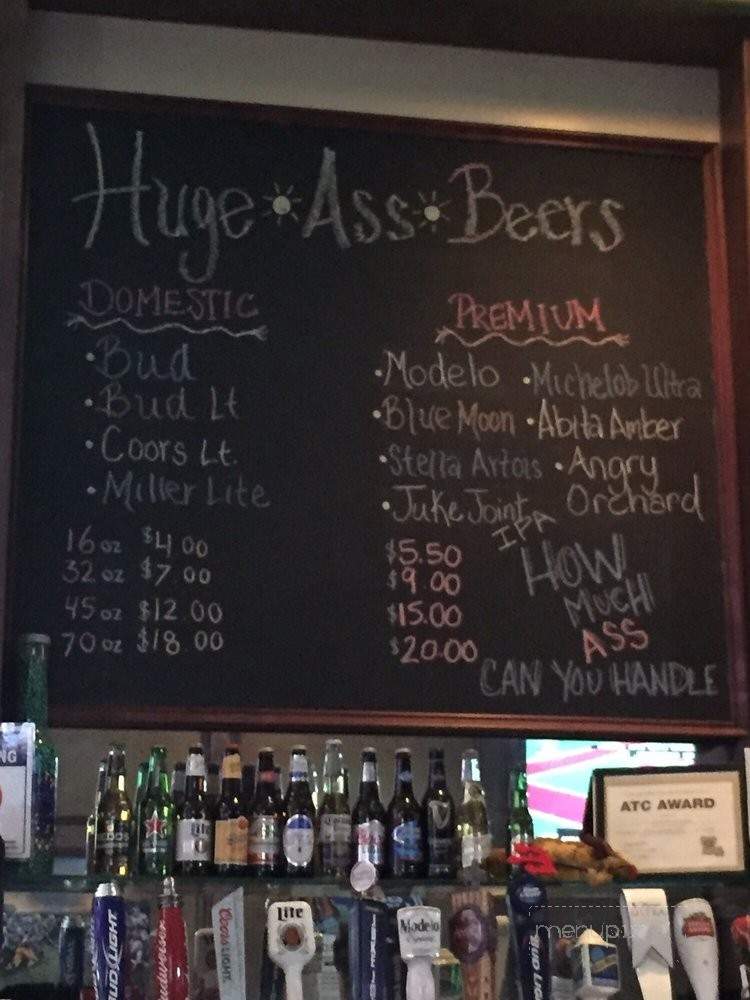 Huge Ass Beers
DOMESTIC
• Bud
• Bud Lt
• Coors Lt.
• Miller Lite
16 oz $4.00
32 oz $7.00
45 oz $12.00
70 oz $18.00
PREMIUM
• Modelo
• Blue Moon
• Stella Artois
• Juke Joint IPA
• Michelob Ultra
• Abita Amber
• Angry
Orchard
$5.50
$9.00
$15.00
$20.00
HOW
MUCH
ASS
CAN YOU HANDLE
NG
ATC AWARD
BUD LIGHT
Budweiser
Coors
LIGHT
Lite
Modelo
ULTRA
menupix